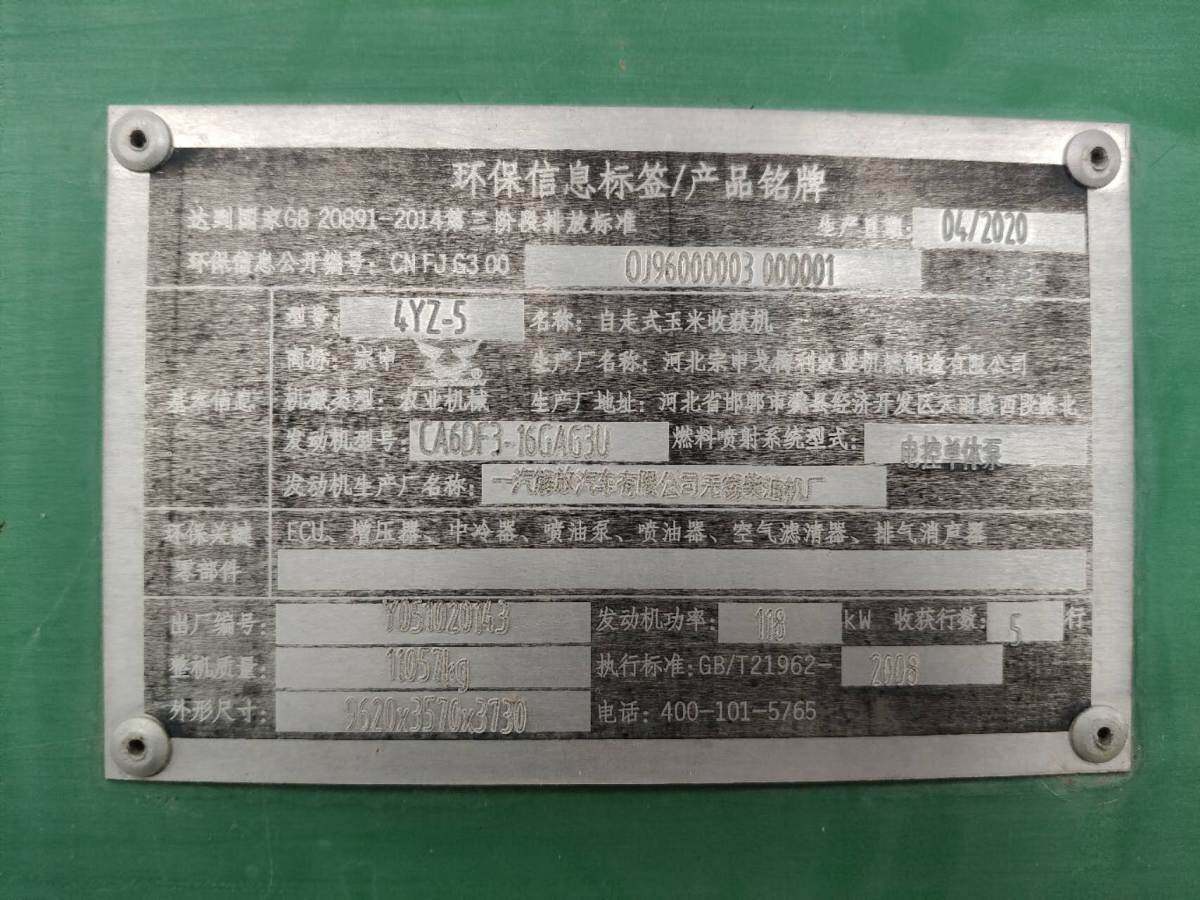 环保信息标签/产品铭牌
达到国家GB 20891-2014第三阶段排放标准 生产日期: 04/2020
环保信息公开编号: CN FJ G3 00 0J96000003 000001
型号: 4YZ-5 名称: 自走式玉米收获机
商标: 宗申 ® 生产厂名称: 河北宗申戈梅利农业机械制造有限公司
基本信息 机械类型: 农业机械 生产厂地址: 河北省邯郸市魏县经济开发区天雨路西段路北
发动机型号: CA6DF3-16GAG3U 燃料喷射系统型式: 电控单体泵
发动机生产厂名称: 一汽解放汽车有限公司无锡柴油机厂
环保关键 ECU、增压器、中冷器、喷油泵、喷油器、空气滤清器、排气消声器
零部件
出厂编号: Y051020143 发动机功率: 118 kW 收获行数: 5 行
整机质量: 11057kg 执行标准:GB/T21962- 2008
外形尺寸: 9620x3570x3730 电话: 400-101-5765